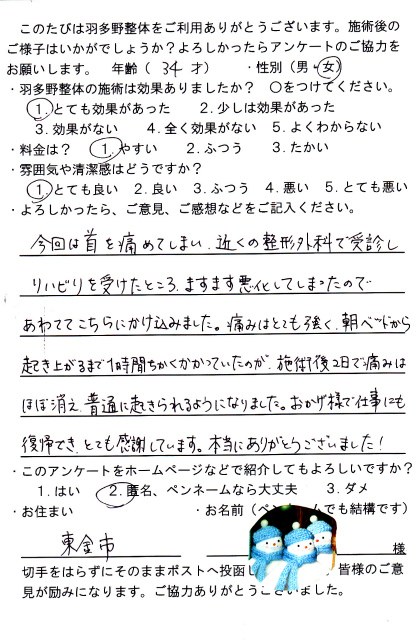 このたびは羽多野整体をご利用ありがとうございます。施術後の
ご様子はいかがでしょうか？よろしかったらアンケートのご協力を
お願いします。 年齢（ 34 才） ・性別（男・女）
・羽多野整体の施術は効果ありましたか？ ○をつけてください。
1. とても効果があった 2. 少しは効果があった
3. 効果がない 4. 全く効果がない 5. よくわからない
・料金は？ 1. やすい 2. ふつう 3. たかい
・雰囲気や清潔感はどうですか？
1. とても良い 2. 良い 3. ふつう 4. 悪い 5. とても悪い
・よろしかったら、ご意見、ご感想などをご記入ください。
今回は首を痛めてしまい、近くの整形外科で受診し
リハビリを受けたところ、ますます悪化してしまったので
あわててこちらにかけ込みました。痛みはとても強く、朝ベッドから
起き上がるまで1時間ちかくかかっていたのが、施術後2日で痛みは
ほぼ消え、普通に起きられるようになりました。おかげ様で仕事にも
復帰でき、とても感謝しています。本当にありがとうございました！
・このアンケートをホームページなどで紹介してもよろしいですか？
1. はい 2. 匿名、ペンネームなら大丈夫 3. ダメ
・お住まい ・お名前（ペンネームでも結構です）
東金市 様
切手をはらずにそのままポストへ投函し 皆様のご意
見が励みになります。ご協力ありがとうございました。